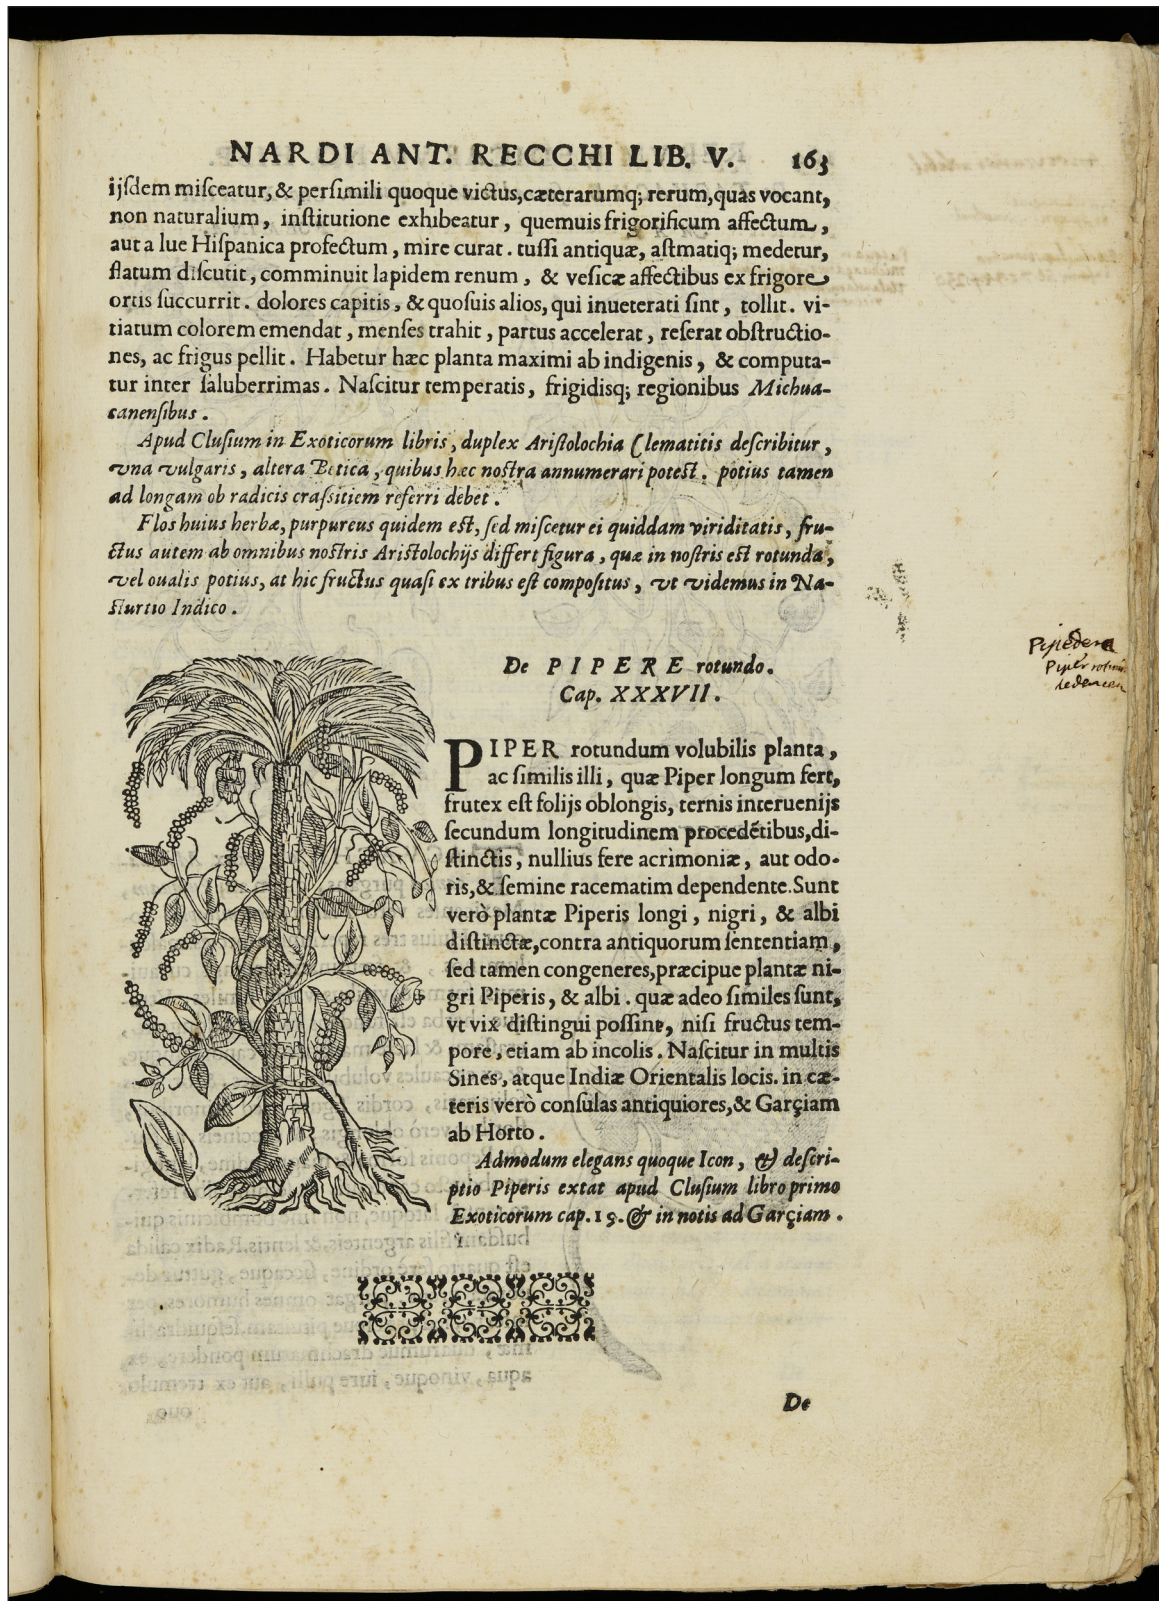 NARDI ANT. RECCHI LIB. V. 163
ijsdem misceatur, & persimili quoque victus, cæterarumq; rerum, quas vocant,
non naturalium, institutione exhibeatur, quemuis frigorificum affectum,
aut a lue Hispanica profectum, mire curat. tussi antiquæ, astmatiq; medetur,
flatum discutit, comminuit lapidem renum, & vesicæ affectibus ex frigore
ortis succurrit. dolores capitis, & quosuis alios, qui inueterati sint, tollit. vi-
tiatum colorem emendat, menses trahit, partus accelerat, reserat obstructio-
nes, ac frigus pellit. Habetur hæc planta maximi ab indigenis, & computa-
tur inter saluberrimas. Nascitur temperatis, frigidisq; regionibus Michua-
canensibus.
Apud Clusium in Exoticorum libris, duplex Aristolochia Clematitis describitur,
vna vulgaris, altera Betica, quibus hæc nostra annumerari potest. potius tamen
ad longam ob radicis crassitiem referri debet.
Flos huius herbæ, purpureus quidem est, sed miscetur ei quiddam viriditatis, fru-
ctus autem ab omnibus nostris Aristolochijs differt figura, quæ in nostris est rotunda,
vel oualis potius, at hic fructus quasi ex tribus est compositus, vt videmus in Na-
sturtio Indico.
De PIPERE rotundo.
Cap. XXXVII.
PIPER rotundum volubilis planta,
ac similis illi, quæ Piper longum fert,
frutex est folijs oblongis, ternis interuenijs
secundum longitudinem procedẽtibus, di-
stinctis, nullius fere acrimoniæ, aut odo-
ris, & semine racematim dependente. Sunt
verò plantæ Piperis longi, nigri, & albi
distinctæ, contra antiquorum sententiam,
sed tamen congeneres, præcipue plantæ ni-
gri Piperis, & albi. quæ adeo similes sunt,
vt vix distingui possint, nisi fructus tem-
pore, etiam ab incolis. Nascitur in multis
Sines, atque Indiæ Orientalis locis. in cæ-
teris verò consulas antiquiores, & Garçiam
ab Horto.
Admodum elegans quoque Icon, & descri-
ptio Piperis extat apud Clusium libro primo
Exoticorum cap. 19. & in notis ad Garçiam.
De
Piper